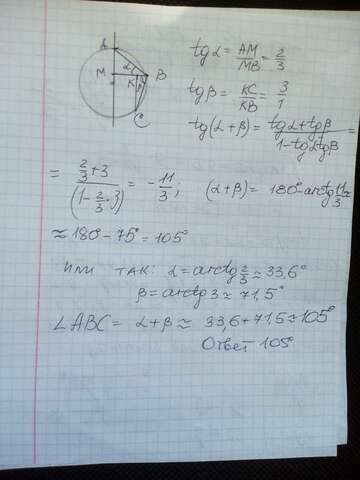 A
α
M K β B
C
tgα = AM/MB = 2/3
tgβ = KC/KB = 3/1
tg(α+β) = (tgα+tgβ)/(1-tgαtgβ) =
= (2/3+3)/(1-2/3·3) = -11/3; (α+β) = 180°-arctg 11/3 ≈
≈ 180° - 75° = 105°
или так: α = arctg 2/3 ≈ 33,6°
β = arctg 3 ≈ 71,5°
∠ABC = α+β ≈ 33,6+71,5 ≈ 105°
Ответ 105°